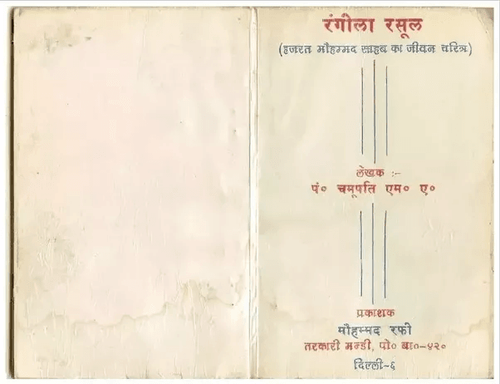 रंगीला रसूल
(हजरत मौहम्मद साहब का जीवन चरित्र)
लेखक :-
पं० चमूपति एम० ए०
प्रकाशक
मौहम्मद रफी
तरकारी मण्डी, पो० बा०-४२०
दिल्ली-६